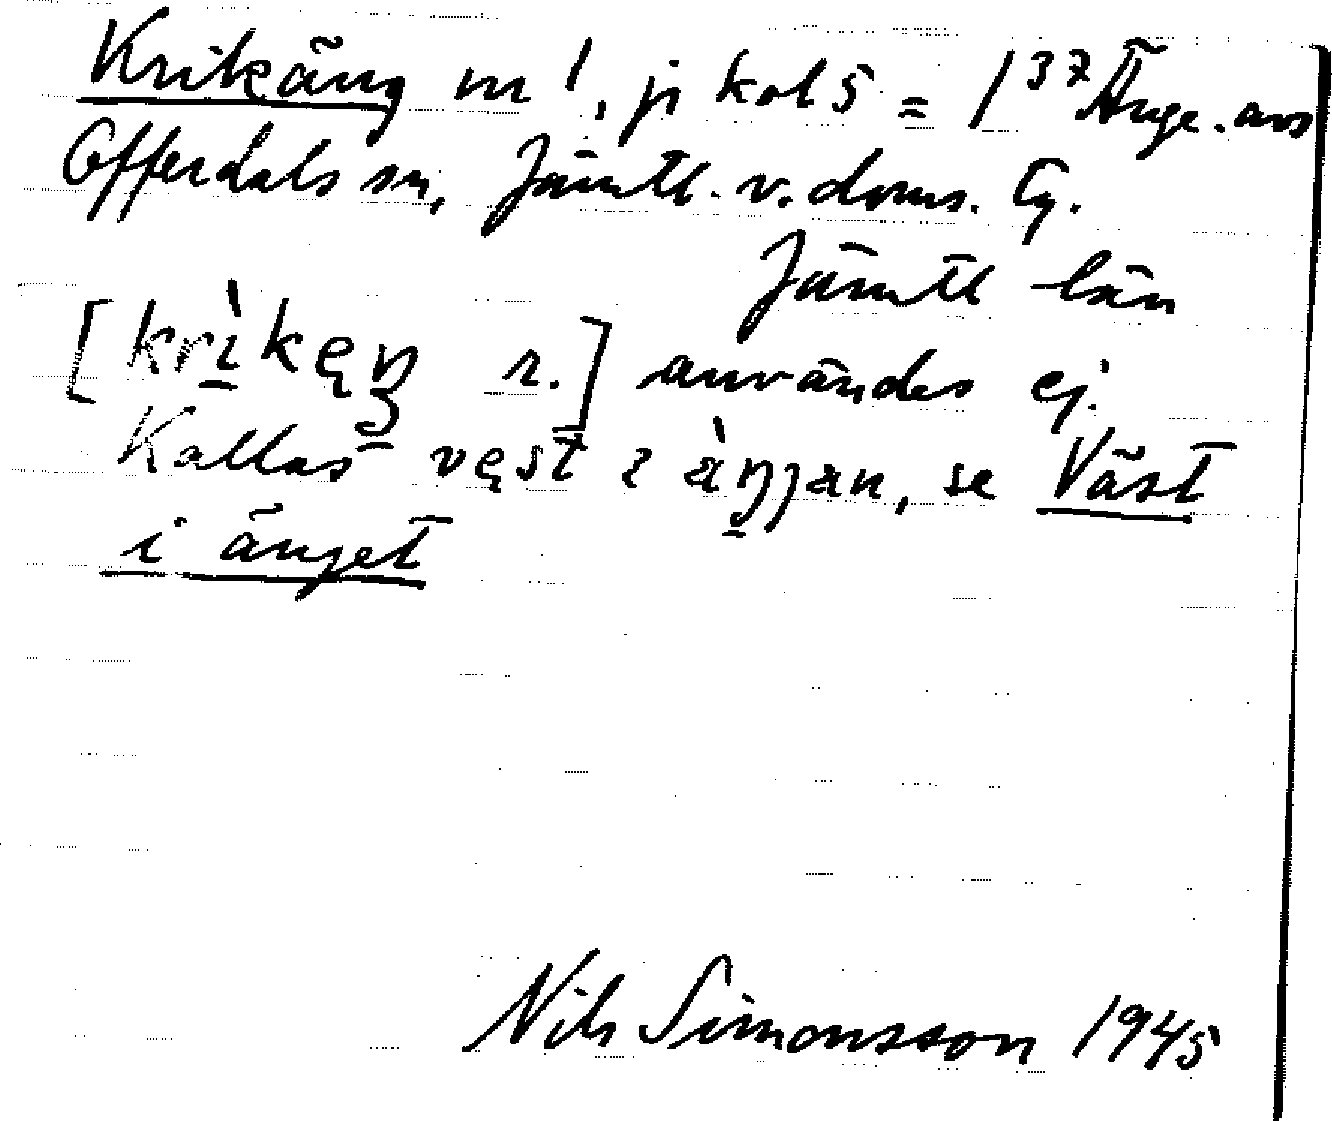 Krikäng m¹, ji kol 5 = 1³⁷ Änge. avs
Offerdals sn, Jämtl. v. doms. Lg.
Jämtl län
[krìkęŋ n.] användes ej.
Kallas vęst i àŋjan, se Väst
i änget
Nils Simonsson 1945